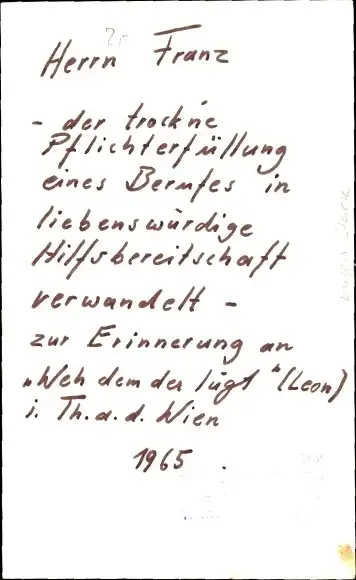 Herrn Franz
- der trock'ne
Pflichterfüllung
eines Berufes in
liebenswürdige
Hilfsbereitschaft
verwandelt -
zur Erinnerung an
„Weh dem der lügt" (Leon)
i. Th. a. d. Wien
1965.